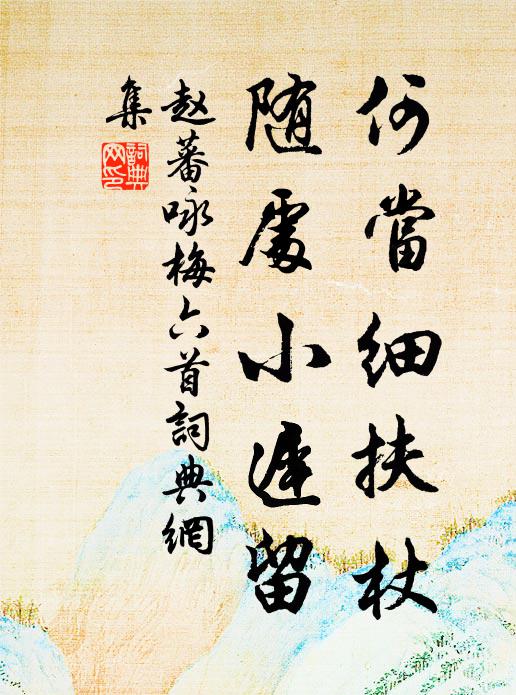 何當細扶杖
随處小遲留
赵蕃咏梅六首詞典網
集
詞典網印